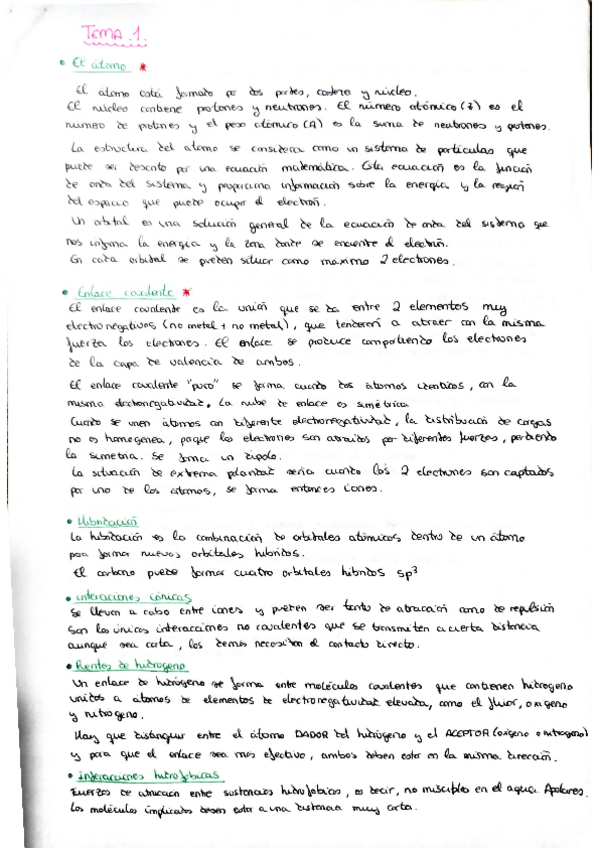 TEMA 1.
• El átomo *
El átomo está formado por dos partes, corteza y núcleo.
El núcleo contiene protones y neutrones. El número atómico (Z) es el
numero de protones y el peso atómico (A) es la suma de neutrones y protones.
La estructura del átomo se considera como un sistema de partículas que
puede ser descrito por una ecuación matemática. Esta ecuación es la función
de onda del sistema y proporciona información sobre la energía y la región
del espacio que puede ocupar el electrón.
Un orbital es una solución general de la ecuación de onda del sistema que
nos informa la energía y la zona donde se encuentre el electrón.
En cada orbital se pueden situar como máximo 2 electrones.
• Enlace covalente *
El enlace covalente es la unión que se da entre 2 elementos muy
electronegativos (no metal + no metal), que tenderán a atraer con la misma
fuerza los electrones. El enlace se produce compartiendo los electrones
de la capa de valencia de ambos.
El enlace covalente "puro" se forma cuando dos átomos identicos, con la
misma electronegatividad. La nube de enlace es simétrica.
Cuando se unen átomos con diferente electronegatividad, la distribución de cargas
no es homogenea, porque los electrones son atraidos por diferentes fuerzas, perdiendo
la simetria. Se forma un dipolo.
La situación de extrema polaridad seria cuando los 2 electrones son captados
por uno de los atomos, se forma entonces iones.
• Hibridación
La hibridación es la combinación de orbitales atómicos, dentro de un átomo
para formar nuevos orbitales hibridos.
El carbono puede formar cuatro orbitales hibridos sp³
• interaciones iónicas
Se llevan a cabo entre iones y pueden ser tanto de atracción como de repulsión
Son las únicas interacciones no covalentes que se transmiten a cierta distancia
aunque sea corta, los demas necesitan el contacto directo.
• Puentes de hidrogeno
Un enlace de hidrógeno se forma entre moléculas covalentes que contienen hidrogeno
unidos a átomos de elementos de electronegatividad elevada, como el fluor, oxigeno
y nitrogeno.
Hay que distinguir entre el átomo DADOR del hidrógeno y el ACEPTOR (oxigeno o nitrogeno)
y para que el enlace sea mas efectivo, ambos deben estar en la misma dirección.
• interacciones hidrofobicas
Fuerzas de atracción entre sustancias hidrofobicas, es decir, no miscibles en el agua. Apolares.
Las moléculas implicadas deben estar a una distancia muy corta.